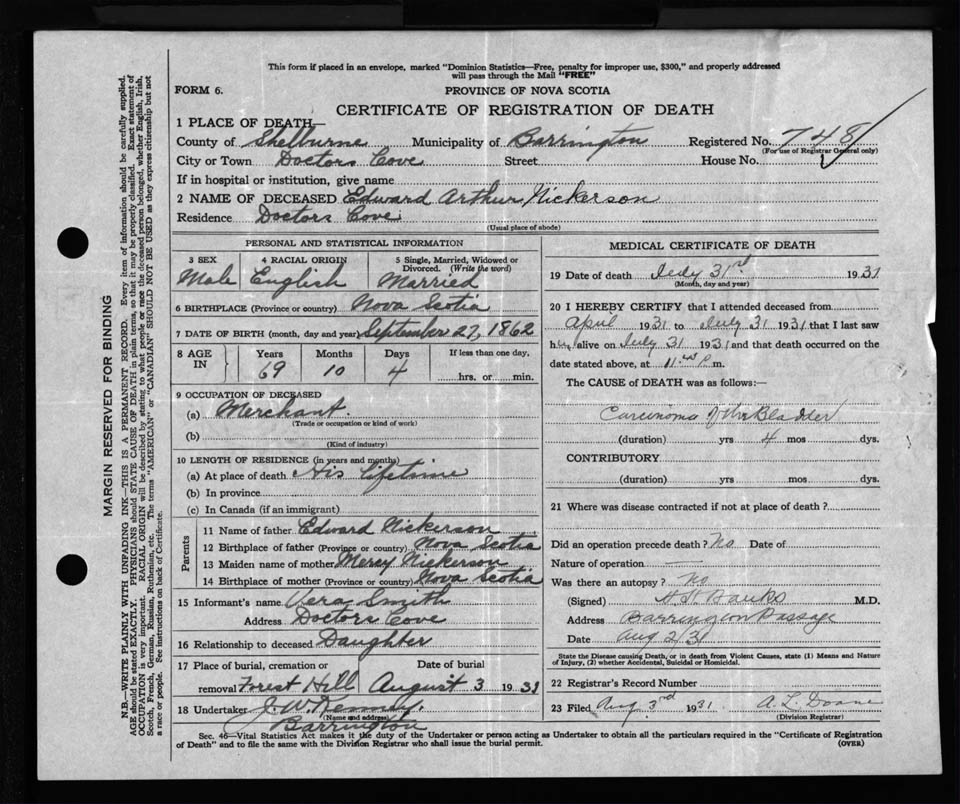 This form if placed in an envelope, marked "Dominion Statistics—Free, penalty for improper use, $300," and properly addressed
will pass through the Mail "FREE"
FORM 6.
PROVINCE OF NOVA SCOTIA
CERTIFICATE OF REGISTRATION OF DEATH
1 PLACE OF DEATH—
County of Shelburne Municipality of Barrington Registered No. 748
(For use of Registrar General only)
City or Town Doctors Cove Street House No.
If in hospital or institution, give name
2 NAME OF DECEASED Edward Arthur Nickerson
Residence Doctors Cove
(Usual place of abode)
PERSONAL AND STATISTICAL INFORMATION
3 SEX 4 RACIAL ORIGIN 5 Single, Married, Widowed or
Divorced. (Write the word)
Male English Married
6 BIRTHPLACE (Province or country) Nova Scotia
7 DATE OF BIRTH (month, day and year) September 27, 1862
8 AGE IN Years Months Days If less than one day,
69 10 4 hrs. or min.
9 OCCUPATION OF DECEASED
(a) Merchant.
(Trade or occupation or kind of work)
(b)
(Kind of industry)
10 LENGTH OF RESIDENCE (in years and months)
(a) At place of death His lifetime
(b) In province
(c) In Canada (if an immigrant)
Parents
11 Name of father Edward Nickerson
12 Birthplace of father (Province or country) Nova Scotia
13 Maiden name of mother Mercy Nickerson
14 Birthplace of mother (Province or country) Nova Scotia
15 Informant's name Vera Smith
Address Doctors Cove
16 Relationship to deceased Daughter
17 Place of burial, cremation or Date of burial
removal Forest Hill August 3 1931
18 Undertaker J. W. Kenney,
(Name and address)
Barrington
MEDICAL CERTIFICATE OF DEATH
19 Date of death July 31rd 1931
(Month, day and year)
20 I HEREBY CERTIFY that I attended deceased from
April 1931 to July 31 1931 that I last saw
him alive on July 31 1931 and that death occurred on the
date stated above, at 11 P. m.
The CAUSE of DEATH was as follows:—
Carcinoma of the Bladder
(duration) yrs 4 mos dys.
CONTRIBUTORY
(duration) yrs. mos. dys.
21 Where was disease contracted if not at place of death?
Did an operation precede death? No Date of
Nature of operation —
Was there an autopsy? No
(Signed) Banks M.D.
Address Barrington Passage
Date Aug 2/31
State the Disease causing Death, or in death from Violent Causes, state (1) Means and Nature
of Injury, (2) whether Accidental, Suicidal or Homicidal.
22 Registrar's Record Number
23 Filed Aug 3rd 1931 A. L. Doane
(Division Registrar)
Sec. 46—Vital Statistics Act makes it the duty of the Undertaker or person acting as Undertaker to obtain all the particulars required in the "Certificate of Registration
of Death" and to file the same with the Division Registrar who shall issue the burial permit.
(OVER)
MARGIN RESERVED FOR BINDING
N.B.—WRITE PLAINLY WITH UNFADING INK—THIS IS A PERMANENT RECORD. Every item of information should be carefully supplied.
AGE should be stated EXACTLY. PHYSICIANS should STATE CAUSE OF DEATH in plain terms, so that it may be properly classified. Exact statement of
OCCUPATION is very important. RACIAL ORIGIN will be described by stating to what people or race the deceased person belonged, whether English, Irish,
Scotch, French, German, Russian, Ruthenian, etc. The terms "AMERICAN" or "CANADIAN" SHOULD NOT BE USED as they express citizenship but not
a race or people. See instructions on back of Certificate.